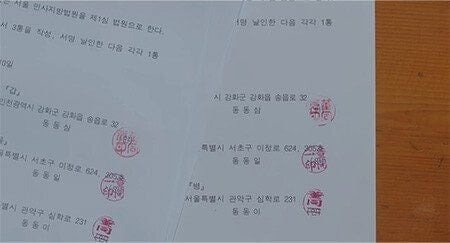 은 서울 민사지방법원을 제1심 법원으로 한다.
서 3통을 작성, 서명 날인한 다음 각각 1통
10일
『갑』
인천광역시 강화군 강화읍 송읍로 32
동 동 삼
울특별시 서초구 이정로 624, 205호
동 동 일
별시 관악구 심학로 231
동 동 이
서명 날인한 다음 각각 1통
시 강화군 강화읍 송읍로 32
동 동 삼
특별시 서초구 이정로 624,
동 동 일
『병』
서울특별시 관악구 심학로 231
동 동 이